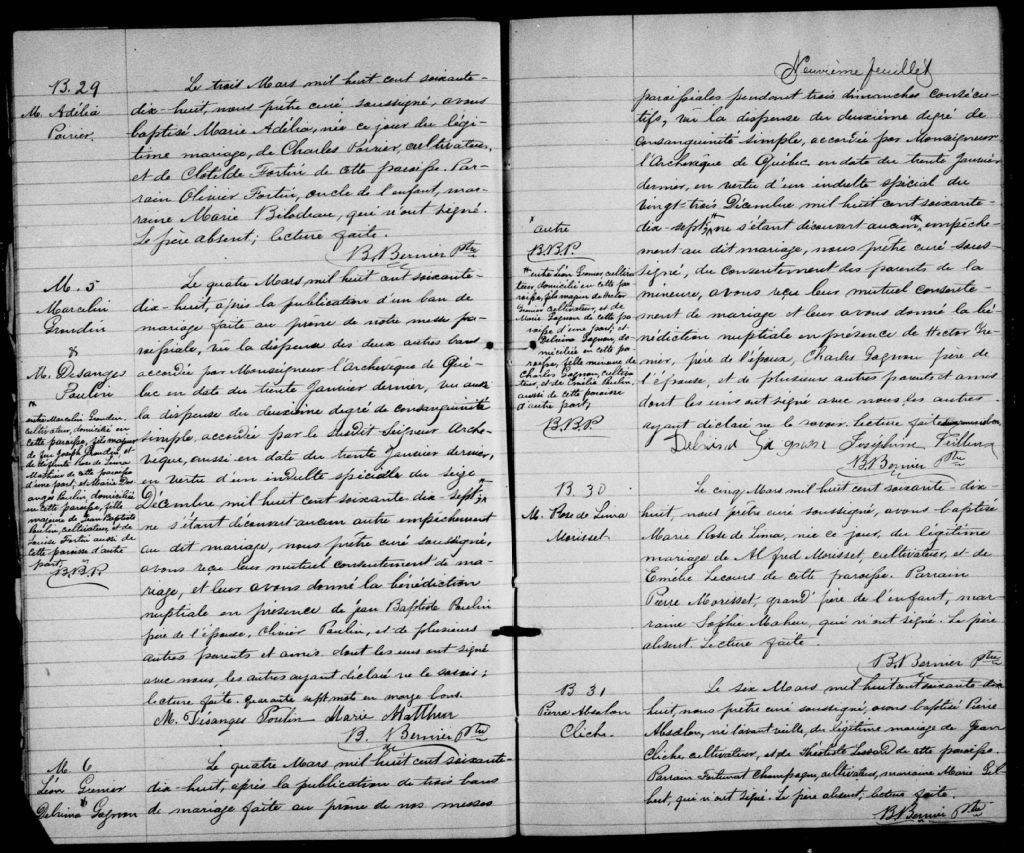 B. 29
M. Adélia
Poirier.
Le trois Mars mil huit cent soixante-
dix-huit, nous prêtre curé soussigné, avons
baptisé Marie Adélia, née ce jour du légi-
time mariage, de Charles Poirier, cultivateur,
et de Clotilde Fortin de cette paroisse. Par-
rain Olivier Fortin, oncle de l'enfant, mar-
raine Marie Bilodeau, qui n'ont signé.
Le père absent; lecture faite.
B. Bernier Ptre
M. 5
Marcelin
Grondin
&
M. Désanges
Poulin
Le quatre Mars, mil huit cent soixante-
dix-huit, après la publication d'un ban de
mariage faite au prône de notre messe pa-
roissiale, vu la dispense des deux autres bans
accordée par Monseigneur l'Archevêque de Qué-
bec en date du trente Janvier dernier, vu aussi
la dispense du deuxième degré de consanguinité
simple, accordée par le susdit Seigneur Arche-
vêque, aussi en date du trente Janvier dernier,
en vertu d'un indulte spéciale du seize
Décembre mil huit cent soixante-dix-sept
ne s'étant découvert aucun autre empêchement
au dit mariage, nous prêtre curé soussigné,
avons reçu leur mutuel consentement de ma-
riage, et leur avons donné la bénédiction
nuptiale en présence de Jean Baptiste Poulin
père de l'épouse, Olivier Poulin, et de plusieurs
autres parents et amis dont les uns ont signé
avec nous, les autres ayant déclaré ne le savoir;
lecture faite. Quarante sept mots en marge bons.
M. Désanges Poulin Marie Matthieu
B. Bernier Ptre
entre Marcelin Grondin,
cultivateur, domicilié en
cette paroisse, fils majeur
de feu Joseph Grondin, et
de Rose de Lima
Mathieu de cette paroisse
d'une part; et Marie Dés-
anges Poulin, domiciliée
en cette paroisse, fille
majeure de Jean Baptiste
Poulin, cultivateur, et de
Louise Fortin aussi de
cette paroisse d'autre
part.
B.B.P.
M. 6
Léon Grenier
&
Delvina Gagnon
Le quatre Mars mil huit cent soixante-
dix-huit, après la publication de trois bans
de mariage faite au prône de nos messes
Neuvième feuillet
paroissiales pendant trois dimanches consécu-
tifs, vu la dispense du deuxième degré de
consanguinité simple, accordée par Monseigneur
l'Archevêque de Québec en date du trente Janvier
dernier, en vertu d'un indulte spécial du
vingt-trois Décembre mil huit cent soixante-
dix-sept, ne s'étant découvert aucun empêche-
ment au dit mariage, nous prêtre curé sous-
signé, du consentement des parents de la
mineure, avons reçu leur mutuel consente-
ment de mariage et leur avons donné la bé-
nédiction nuptiale en présence de Hector Gre-
nier, père de l'époux, Charles Gagnon père de
l'épouse, et de plusieurs autres parents et amis
dont les uns ont signé avec nous les autres
ayant déclaré ne le savoir. Lecture faite
Delvina Gagnon Joséphine
B. Bernier Ptre
autre
B.B.P.
entre Léon Grenier, cultiva-
teur, domicilié en cette pa-
roisse, fils majeur de Hector
Grenier cultivateur, et de
Marie Gagnon de cette pa-
roisse d'une part; et
Delvina Gagnon, do-
miciliée en cette pa-
roisse, fille mineure de
Charles Gagnon, cultiva-
teur, et de Emélie Poulin,
aussi de cette paroisse
d'autre part.
B.B.P.
B. 30
M. Rose de Lima
Morisset
Le cinq Mars mil huit cent soixante-dix-
huit, nous prêtre curé soussigné, avons baptisé
Marie Rose de Lima, née ce jour, du légitime
mariage de Alfred Morisset, cultivateur, et de
Emélie Lecours de cette paroisse. Parrain
Pierre Morisset, grand'père de l'enfant, mar-
raine Sophie Maheu, qui n'ont signé. Le père
absent. Lecture faite.
B. Bernier Ptre
B. 31
Pierre Absalon
Cliche.
Le six Mars mil huit cent soixante dix
huit, nous prêtre curé soussigné, avons baptisé Pierre
Absalon, né l'avant veille, du légitime mariage de Jean
Cliche, cultivateur, et de Théotiste Lessard de cette paroisse.
Parrain Fortunat Champagne, cultivateur, marraine Marie Gil-
bert, qui n'ont signé. Le père absent; lecture faite.
B. Bernier Ptre